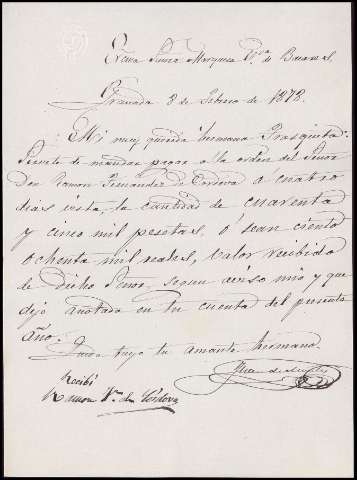 Exma Señora Marquesa Vda de
Granada 8 de Febrero de 1878.
Mi muy querida hermana Frasquita:
Sirvete de mandar pagar a la orden del Señor
Don Ramon Fernandez de Cordova a cuatro
dias vista, la cantidad de cuarenta
y cinco mil pesetas, ó sean ciento
ochenta mil reales, valor recibido
de dicho Señor, segun aviso mio y que
dejo anotada en tu cuenta del presente
año.
Queda tuyo tu amante hermano.
Recibí
Ramon Fz de Cordova